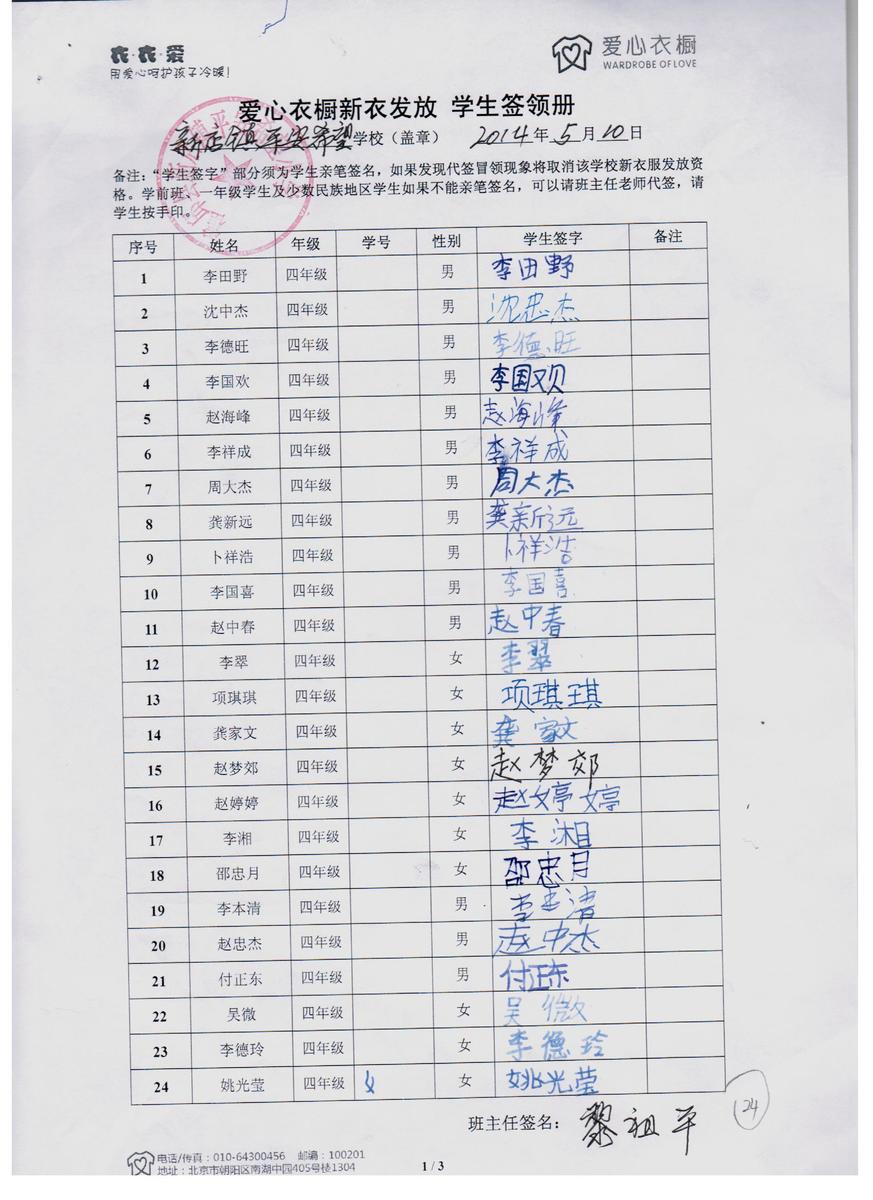 衣·衣·爱
用爱心呵护孩子冷暖!
爱心衣橱
WARDROBE OF LOVE
爱心衣橱新衣发放 学生签领册
新店镇平安希望学校（盖章） 2014年5月10日
备注：“学生签字”部分须为学生亲笔签名，如果发现代签冒领现象将取消该学校新衣服发放资
格。学前班、一年级学生及少数民族地区学生如果不能亲笔签名，可以请班主任老师代签，请
学生按手印。
序号 姓名 年级 学号 性别 学生签字 备注
1 李田野 四年级 男 李田野
2 沈中杰 四年级 男 沈忠杰
3 李德旺 四年级 男 李德旺
4 李国欢 四年级 男 李国欢
5 赵海峰 四年级 男 赵海峰
6 李祥成 四年级 男 李祥成
7 周大杰 四年级 男 周大杰
8 龚新远 四年级 男 龚新远
9 卜祥浩 四年级 男 卜祥浩
10 李国喜 四年级 男 李国喜
11 赵中春 四年级 男 赵中春
12 李翠 四年级 女 李翠
13 项琪琪 四年级 女 项琪琪
14 龚家文 四年级 女 龚家文
15 赵梦郊 四年级 女 赵梦郊
16 赵婷婷 四年级 女 赵婷婷
17 李湘 四年级 女 李湘
18 邵忠月 四年级 女 邵忠月
19 李本清 四年级 男 李本清
20 赵忠杰 四年级 男 赵中杰
21 付正东 四年级 男 付正东
22 吴微 四年级 女 吴微
23 李德玲 四年级 女 李德玲
24 姚光莹 四年级 女 女 姚光莹
班主任签名： 黎祖平
24
电话/传真：010-64300456 邮编：100201
地址：北京市朝阳区南湖中园405号楼1304
1 / 3